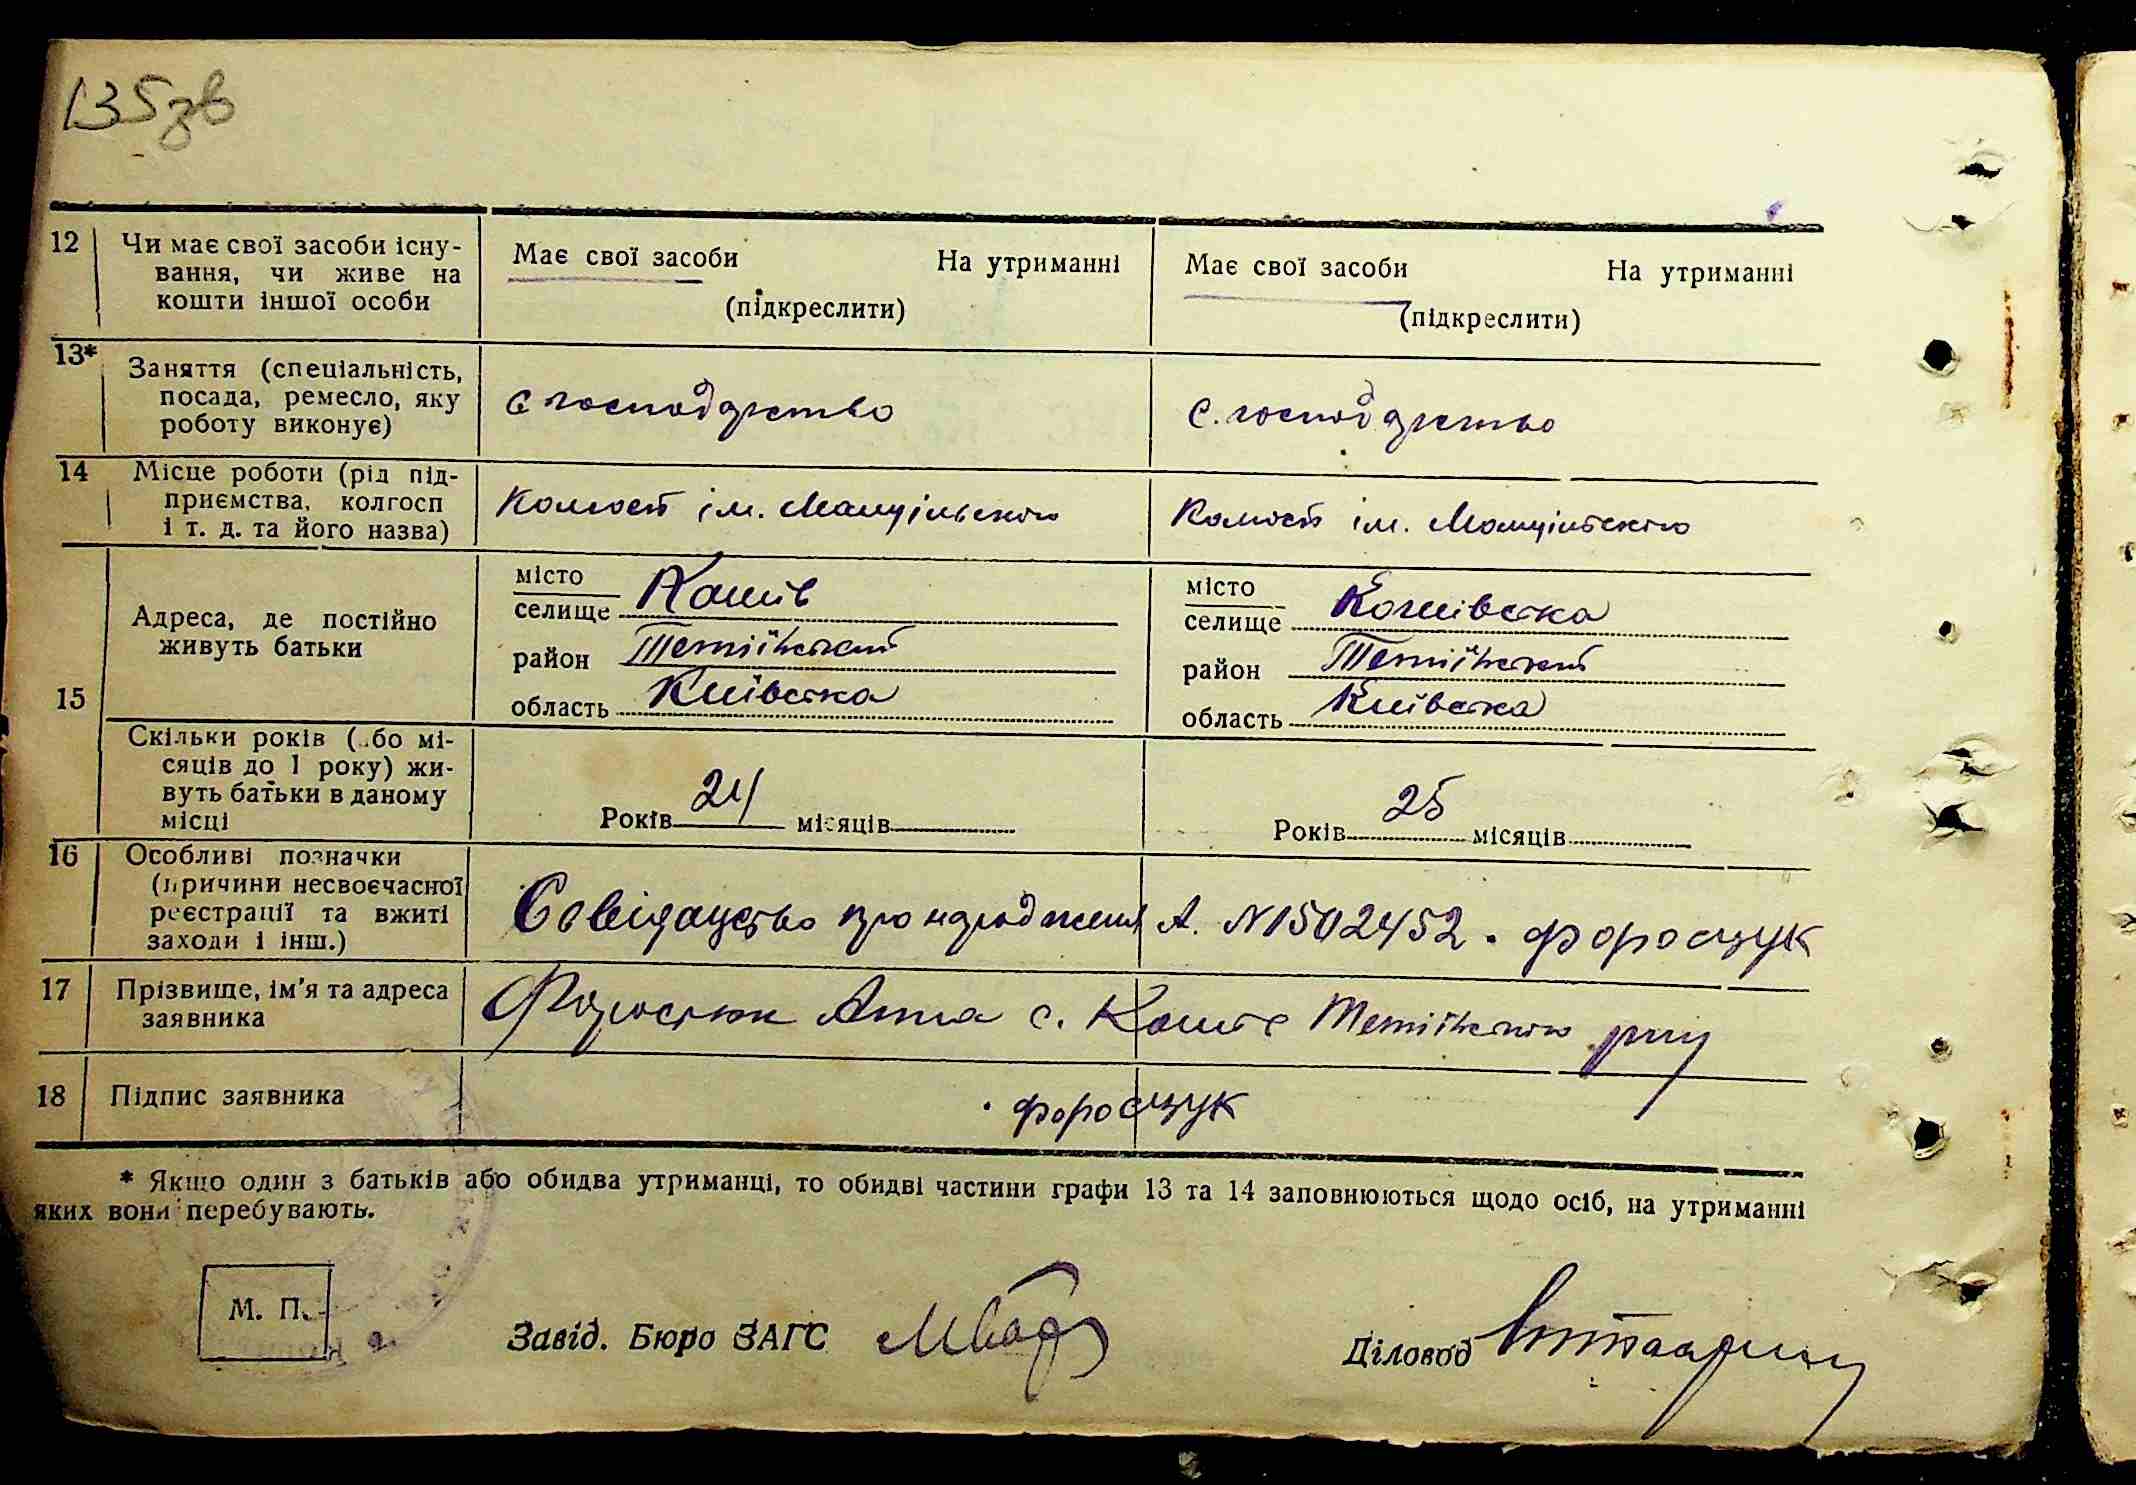 135зв
12 Чи має свої засоби існу-
вання, чи живе на
кошти іншої особи
Має свої засоби На утриманні
(підкреслити)
Має свої засоби На утриманні
(підкреслити)
13* Заняття (спеціальність,
посада, ремесло, яку
роботу виконує)
с господарство
с. господарство
14 Місце роботи (рід під-
приємства, колгосп
і т. д. та його назва)
Колгосп ім. Мануїльського
Колгосп ім. Мануїльського
15 Адреса, де постійно
живуть батьки
місто
селище Кашів
район Тетіївський
область Київська
місто
селище Кашівська
район Тетіївський
область Київська
Скільки років (або мі-
сяців до 1 року) жи-
вуть батьки в даному
місці
Років 24 місяців
Років 25 місяців
16 Особливі позначки
(причини несвоєчасної
реєстрації та вжиті
заходи і інш.)
про народження А. N1502452. Форосцук
17 Прізвище, ім'я та адреса
заявника
Анна с. Тетіївського р-ну
18 Підпис заявника
Форосцук
* Якщо один з батьків або обидва утриманці, то обидві частини графи 13 та 14 заповнюються щодо осіб, на утриманні
яких вони перебувають.
М. П.
Завід. Бюро ЗАГС
Діловод